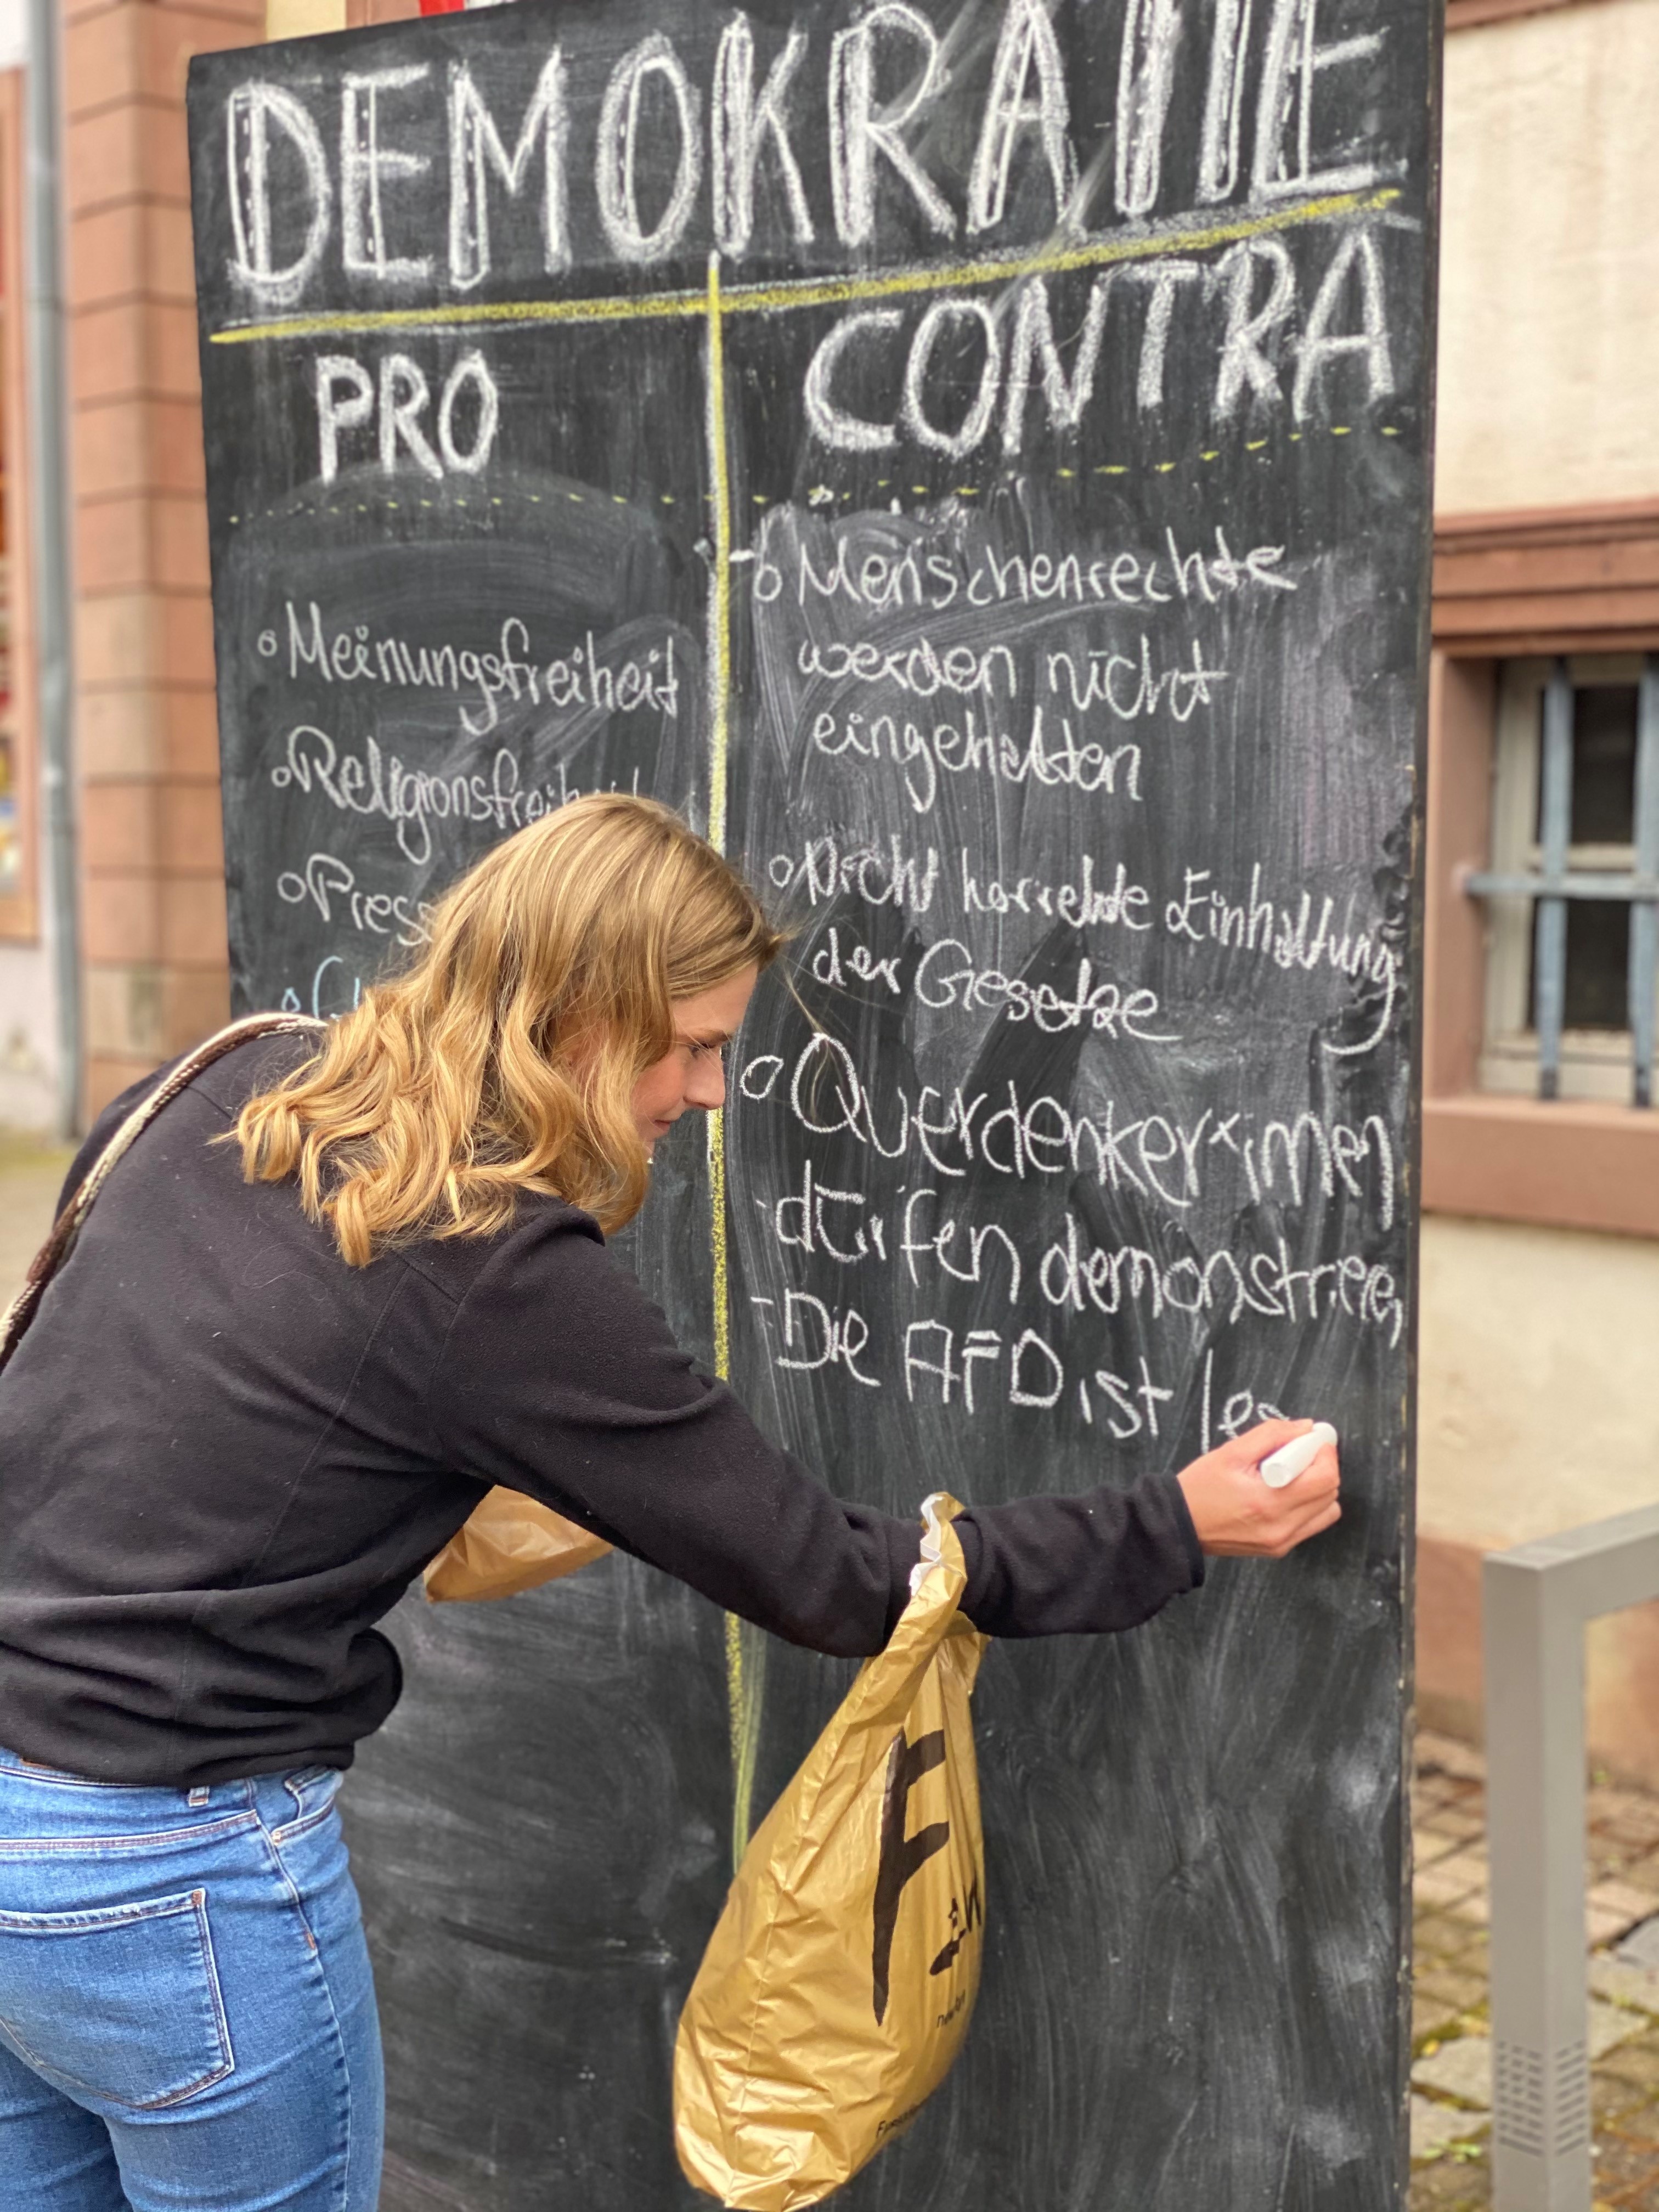 DEMOKRATIE
PRO
CONTRA
Meinungsfreiheit
Religionsfreiheit
Menschenrechte
werden nicht
eingehalten
Nicht korrekte Einhaltung
der Gesetze
Querdenker*innen
dürfen demonstrieren,
-Die AFD ist
F